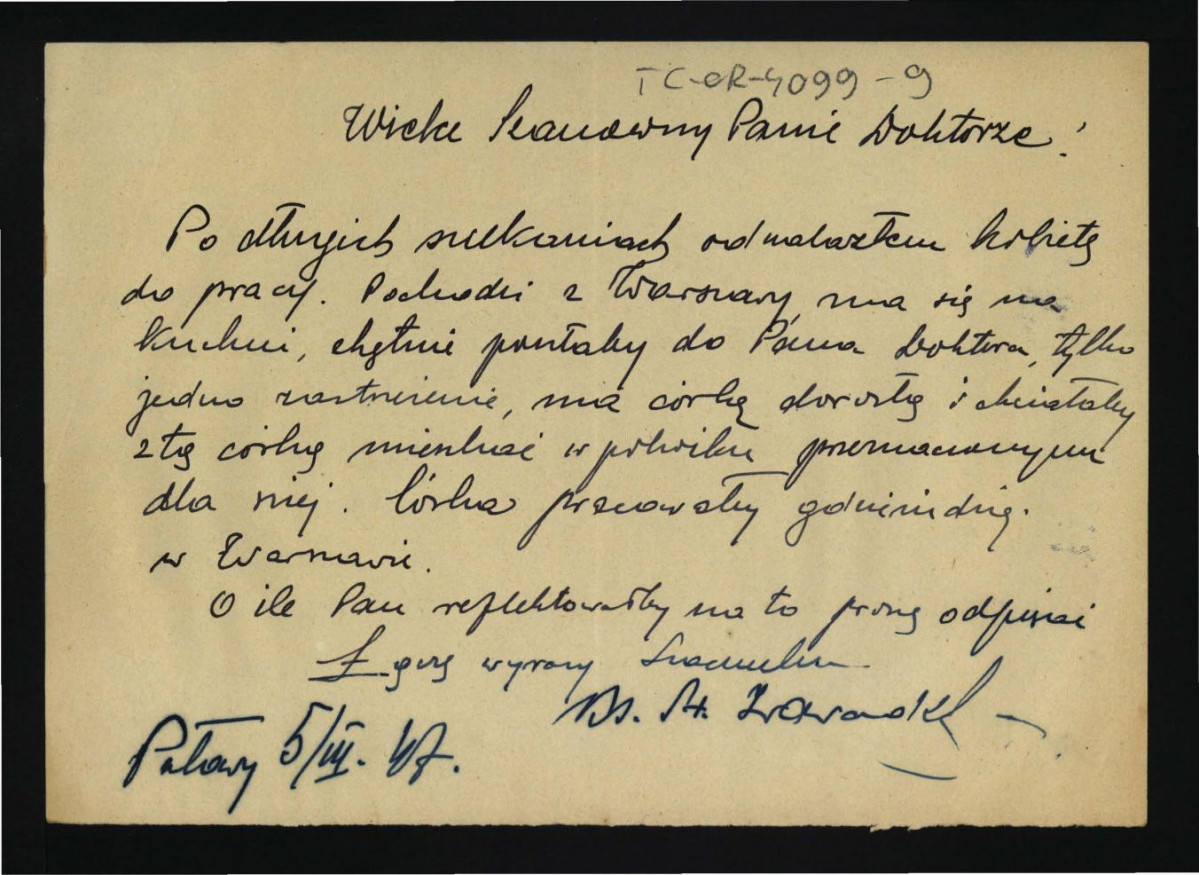 TC-OR-4099-9
Wielce Szanowny Panie Doktorze!
Po długich szukaniach odnalazłem kobietę
do pracy. Pochodzi z Warszawy, zna się na
kuchni, chętnie poszłaby do Pana Doktora, tylko
jedno zastrzeżenie, ma córkę dorosłą i chciałaby
z tą córką mieszkać w pokoiku przeznaczonym
dla niej. Córka pracowałaby
w Warszawie.
O ile Pan reflektowałby na to proszę odpisać
Łączę wyrazy Szacunku
Ks. St. Zawadzki
Puławy 5/III. 47.